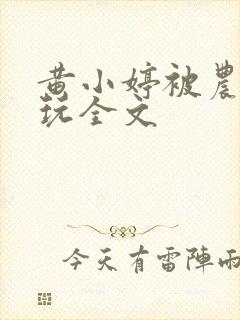 黄小婷被農
玩全文
今天有雷陣雨